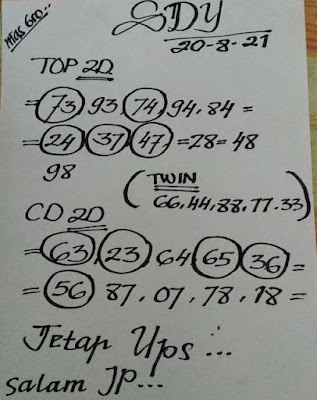 Mas Gro..
SDY
20-8-21
TOP 2D
=73, 93, 74, 94. 84 =
=24, 37, 47, =28= 48
98
(TWIN
66.44.88.77.33)
CD 2D
=63, 23 64 65 36 =
=56 87. 07. 78. 18 =
Tetap Ups...
Salam JP...